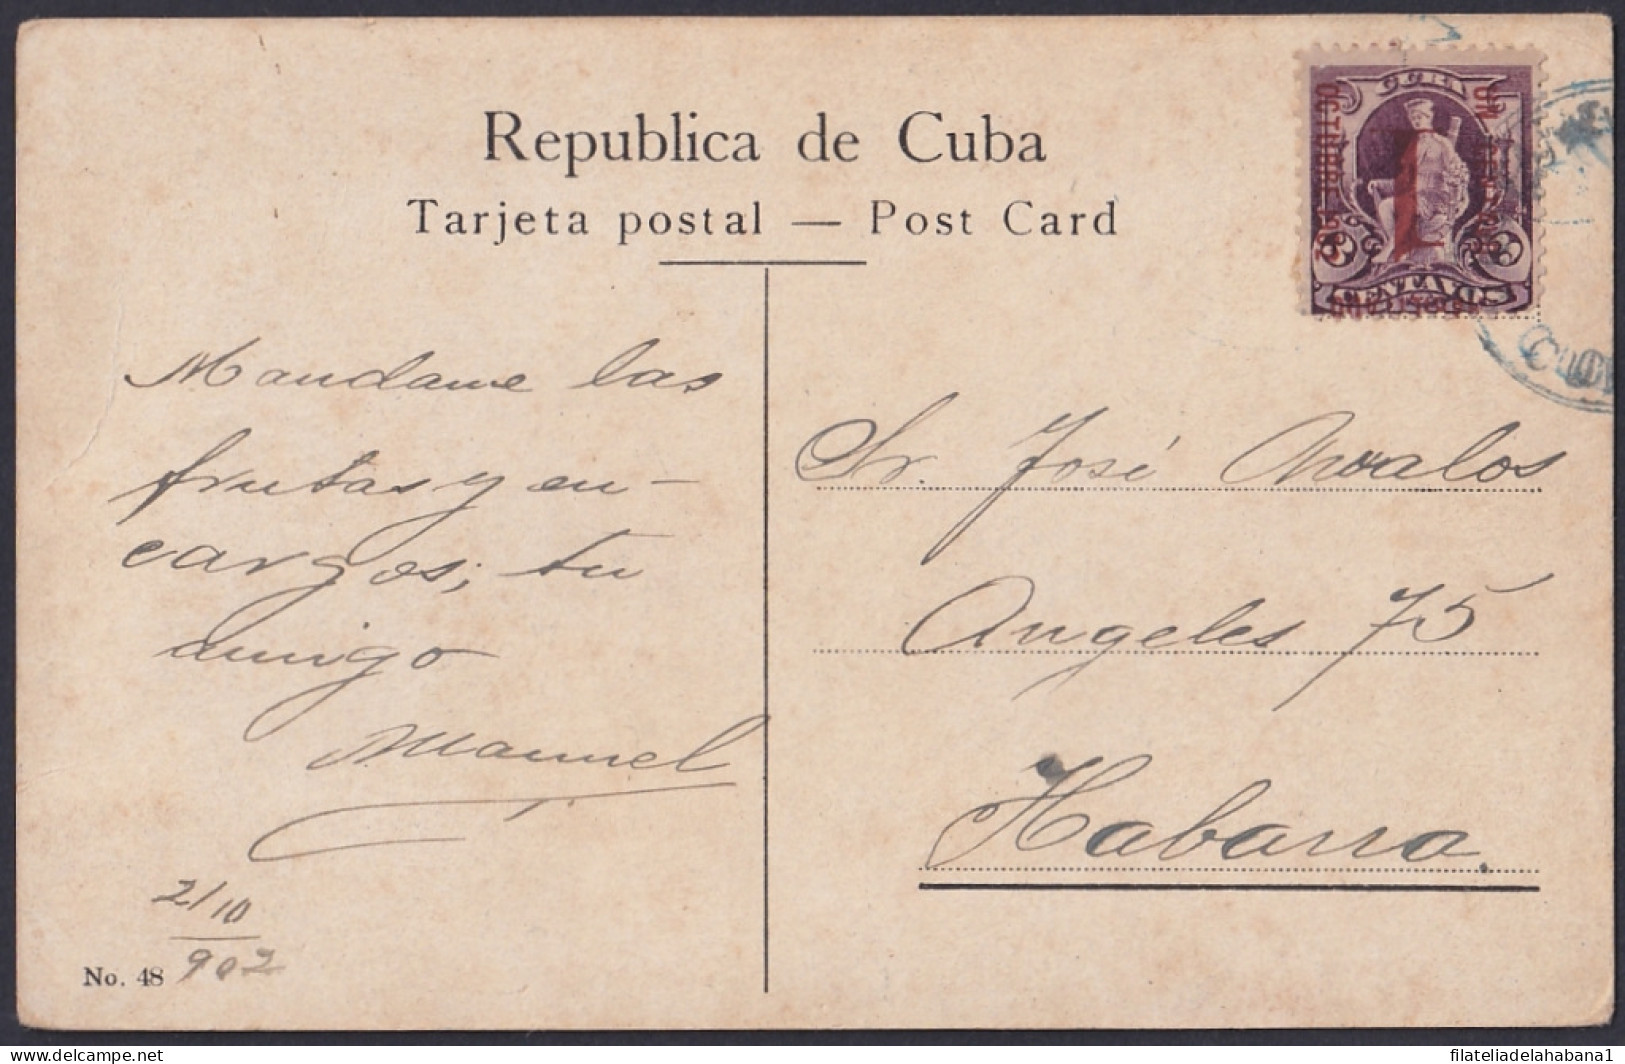 Republica de Cuba
Tarjeta postal — Post Card
CUBA
UN
OCTUBRE 1902
1
3 3
HABILITADO
CENTAVOS
Mandame las
frutas y en-
cargos, tu
amigo
Manuel
2/10
902
No. 48
Sr. José Avalos
Angeles 75
Habana.
filateliadelahabana1